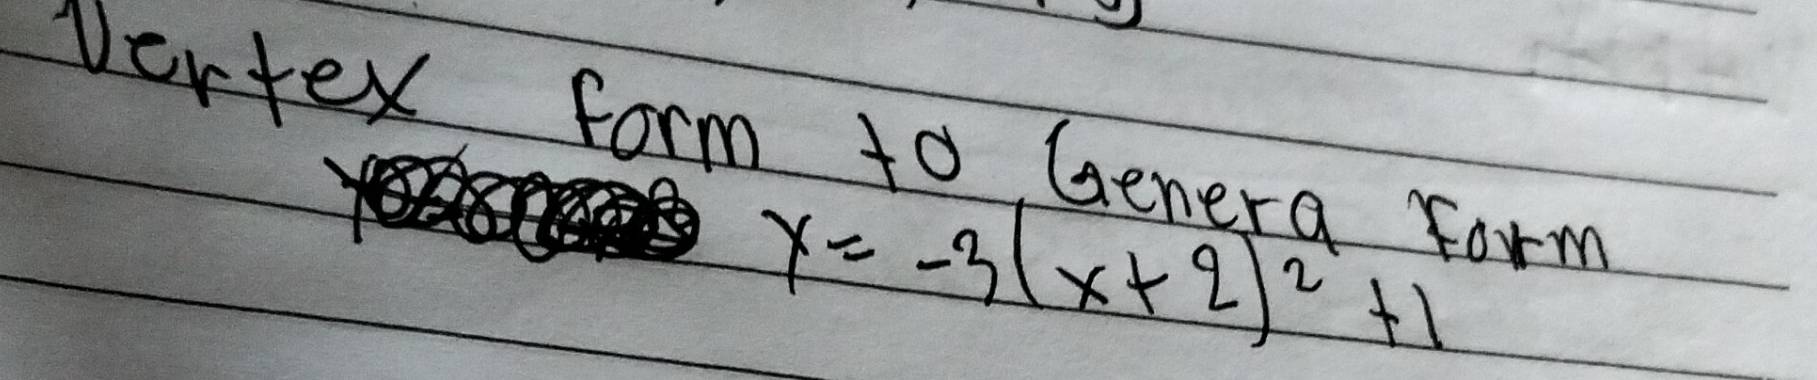 Vertex form to Genera Form
y = -3(x+2)² +1